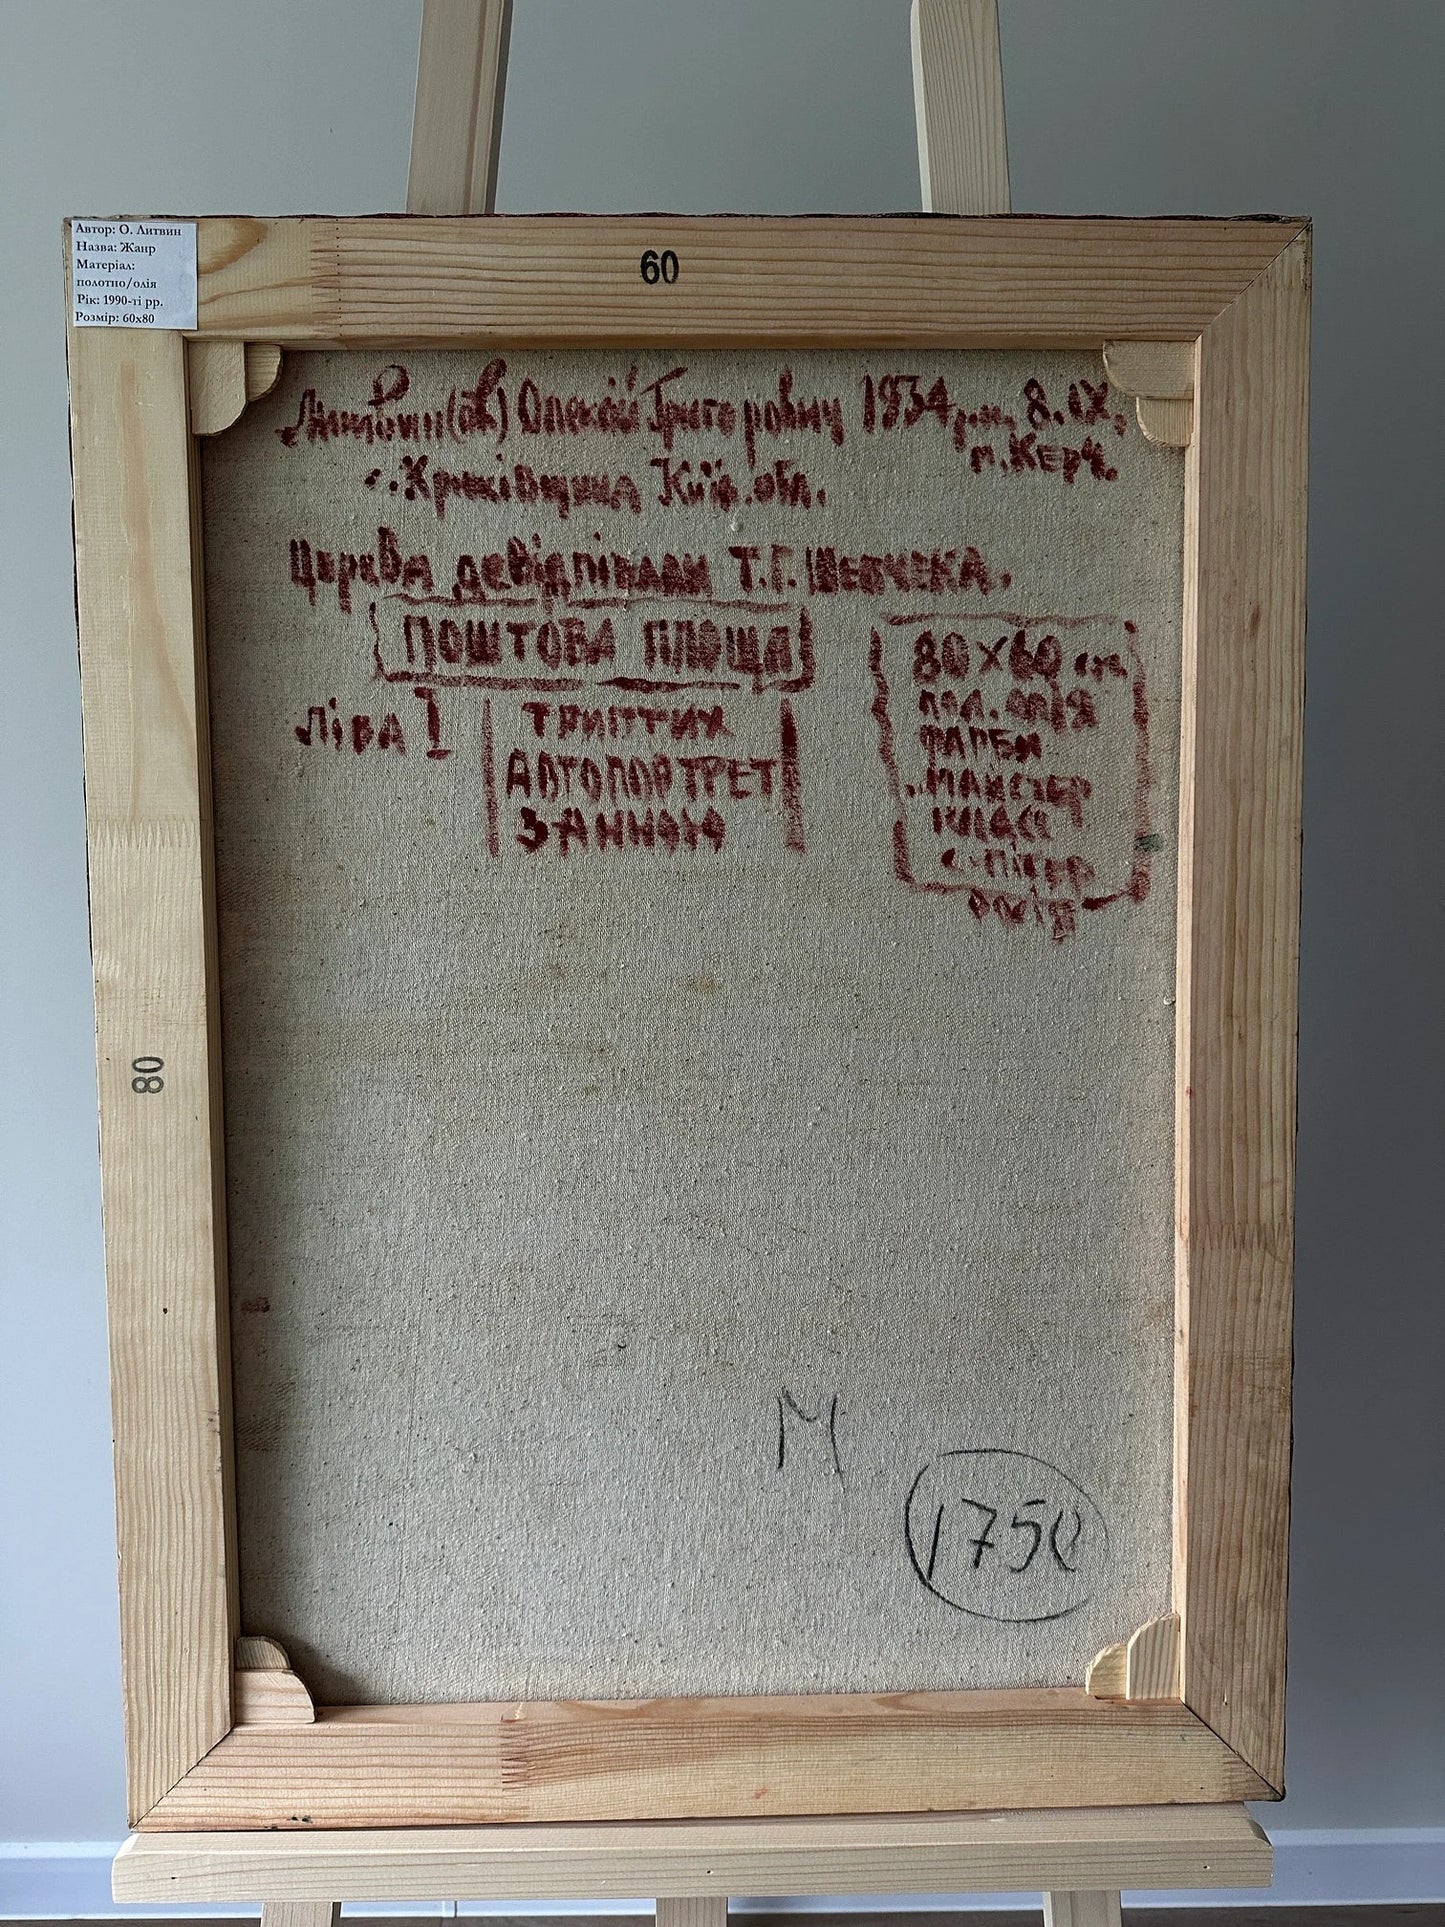 Автор: О. Литвин
Назва: Жанр
Матеріал:
полотно/олія
Рік: 1990-ті рр.
Розмір: 60x80
60
Литвин(ов) Олексій Григорович 1934 р.н. 8.IX.
м. Керч.
Київ. обл.
Церква де відпівали Т.Г. Шевчека.
ПОШТОВА ПЛОЩА
ЛІВА I
ТРИПТИХ
АВТОПОРТРЕТ
З АННОЮ
80×60 см
пол. олія
ФАРБИ
МАЙСТЕР
КЛАСС
С-Пітер
80
М
1750